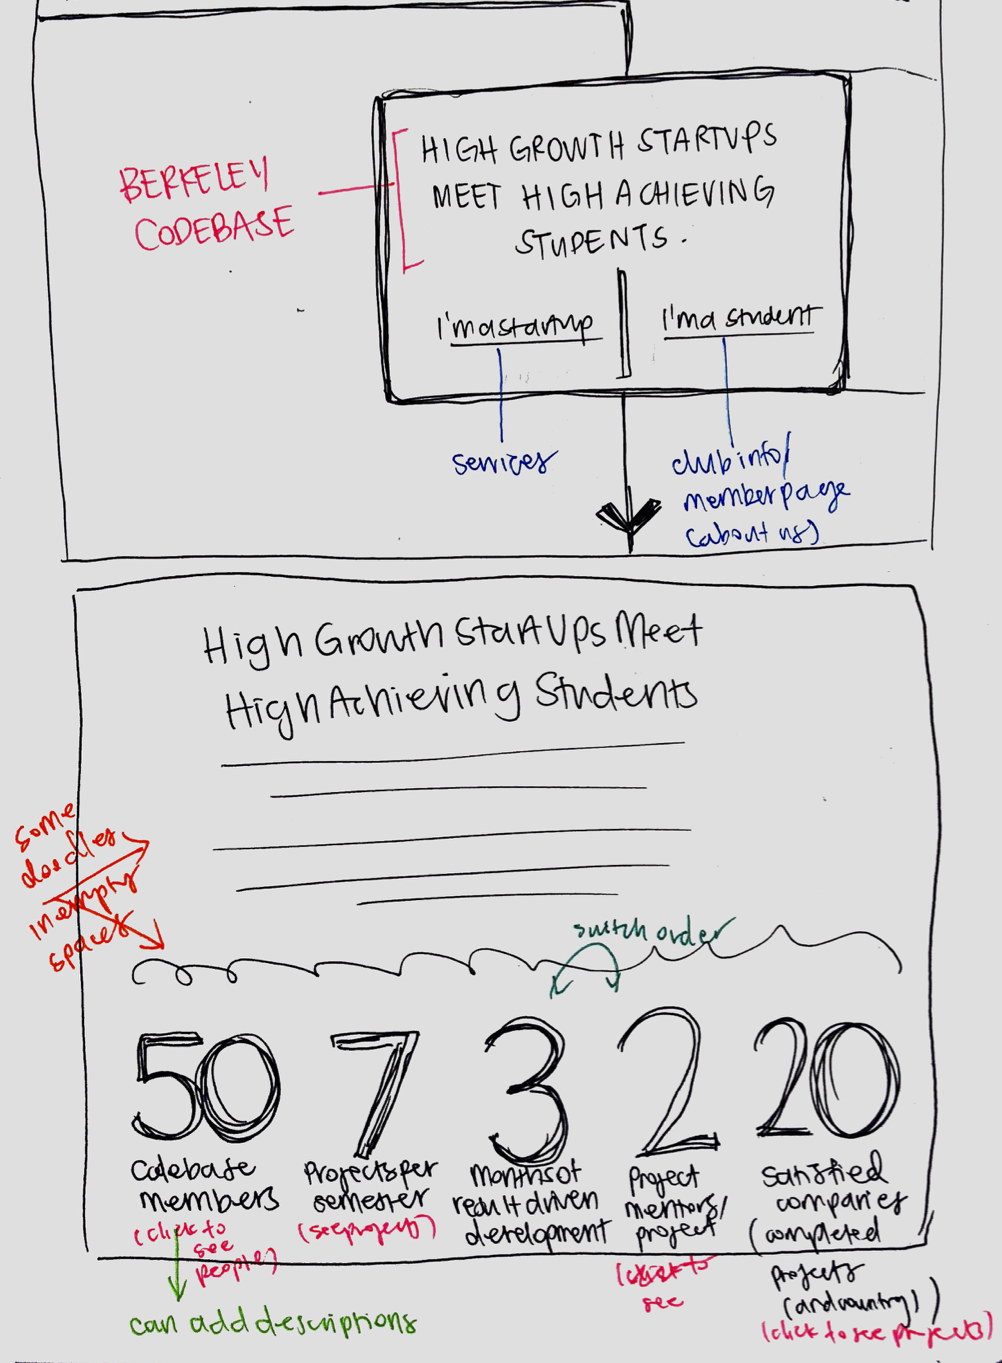 HIGH GROWTH STARTUPS
MEET HIGH ACHIEVING
STUDENTS.
BERKELEY
CODEBASE
I'm a startup
I'm a student
services
club info/
member page
(about us)
High Growth StartUps Meet
High Achieving Students
some
doodles
in empty
spaces
switch order
50
7
3
2
20
Codebase
members
(click to
see
people)
can add descriptions
Projects per
semester
(see projects)
Months of
result driven
development
Project
mentors/
project
(click to
see
Satisfied
companies
(completed
projects
(and country))
(click to see projects)